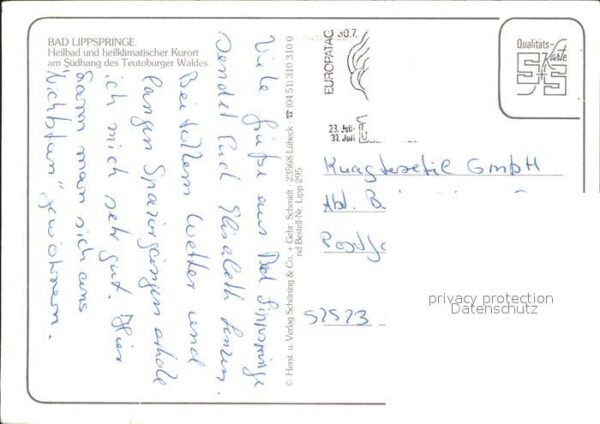 BAD LIPPSPRINGE
Heilbad und heilklimatischer Kurort
am Südhang des Teutoburger Waldes
Viele Grüße aus Bad Lippspringe
sendet Euch Elisabeth
Bei tollem Wetter und
langen Spaziergängen erhole
ich mich sehr gut. Hier
kann man sich ans
"Nichtstun" gewöhnen.
© Herst. u. Verlag Schöning & Co. + Gebr. Schmidt · 23568 Lübeck · ☎ (04 51) 310 310 0
nd Bestell-Nr. Lipp 295
EUROPATAG
30.7.
23. Juli -
31. Juli
Qualitäts-
Karte
S+S
GmbH
Abt. B
52523
privacy protection
Datenschutz